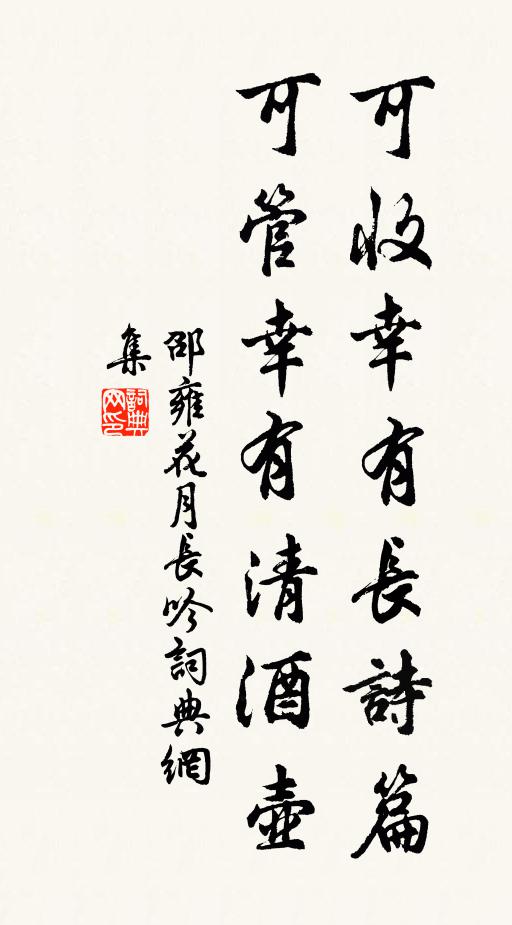 可收幸有長詩篇
可管幸有清酒壺
邵雍花月長吟詞典網
集
詞典网印